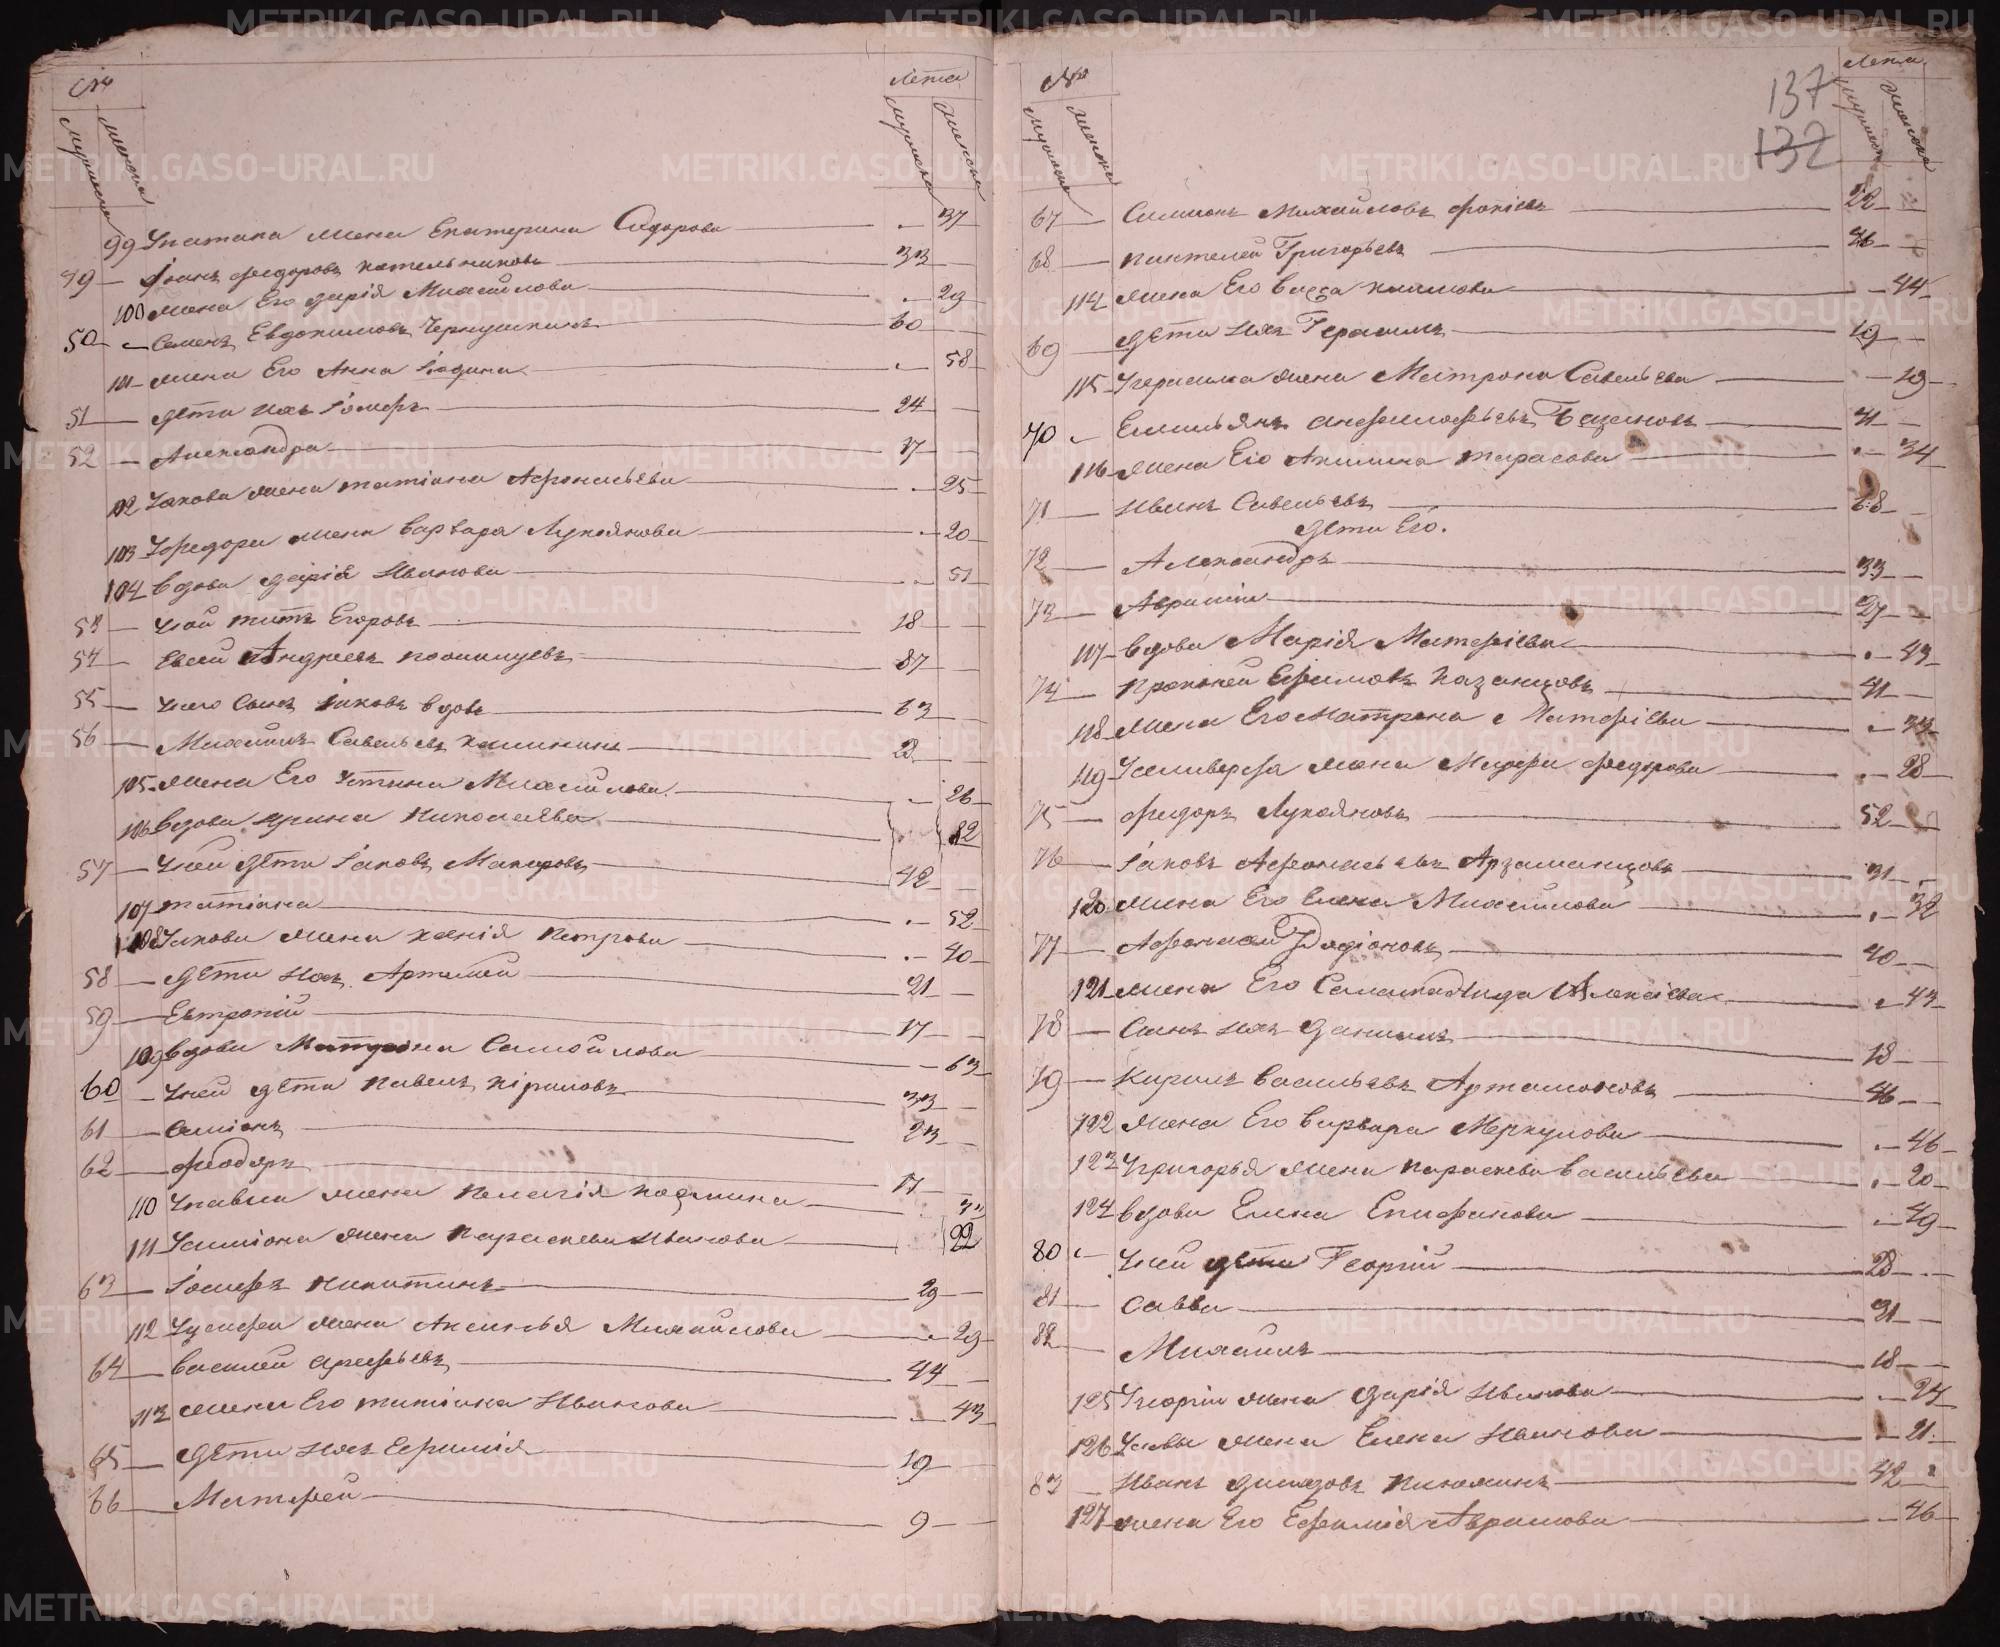 № Лета
Мужеска Женска Мужеска Женска
99 Упатапа жена Екатерина Сидорова — 37
49 Іоанъ Федоровъ Котельниковъ 33
100 жена Его Дарія Михайлова — 29
50 Семенъ Евдокимовъ Чернушкинъ 60
101 жена Его Анна Іодина — 58
51 дѣти ихъ Іосифъ 24
52 Александра 17
102 Іакова жена татіана Афонасьева — 25
103 Уфедора жена варвара Лукоянова — 20
104 вдова дарія Иванова — 51
53 Уной титъ Егоровъ 18
54 Евсей Андреевъ 87
55 Унего Сынъ іаковъ вдовъ 63
56 Михаилъ Савельевъ Калининъ 28
105 жена Его Устина Михайлова — 26
106 вдова Ирина Николаева — 82
57 Уней дѣти Іаковъ Макаровъ 42
107 татіана — 52
108 Уякова жена ксенія Петрова — 40
58 дѣти ихъ Артемей 21
59 Евтропій 17
109 вдова Матрона Самойлова — 63
60 Уней дѣти павелъ кіриловъ 33
61 Симіонъ 23
62 Феодоръ 17
110 Упавла жена Пелагія козмина
111 Усиміона жена Параскева Иванова — 22
63 Іосифъ Никитинъ 29
112 Уіосифа жена Аксинья Михайлова — 29
64 Василей Арефьевъ 44
113 жена Его татіана Иванова — 43
65 дѣти ихъ Ефимія 19
66 Матфей 9
№ Лета
137
132
Мужеска Женска Мужеска Женска
67 Симионъ Михайловъ Фокіевъ 22
68 Пантелей Григорьевъ 46
114 жена Его васса климова — 44
69 дѣти ихъ Герасимъ 19
115 Угерасима жена Матрона Савельева — 19
70 Емильянъ Анфилофьевъ 41
116 жена Его Акилина тарасова — 34
71 Иванъ Савельевъ 68
дѣти Его.
72 Александръ 33
73 Аврамій 27
117 вдова Марія Матфіева — 43
74 Прокопей Ефимовъ Казанцовъ 41
118 жена Его Матрона Матфіева — 33
119 Уселиверста жена Марфа Федорова — 28
75 Федоръ Лукояновъ 52
76 Іаковъ Афонасьевъ Арзамасцовъ 31
120 жена Его Елена Михайлова — 32
77 Афонасей Родіоновъ 40
121 жена Его Саламанида Алексіева — 43
78 Сынъ ихъ Даниилъ 18
79 Кирилъ Васильевъ Артамоновъ 46
122 жена Его Варвара Меркулова — 46
123 Угригорья жена Параскева васильева — 20
124 вдова Елена Епифанова — 49
80 Уней дѣти Георгій 28
81 Савва 21
82 Михаилъ 18
125 Угеоргія жена Дарія Иванова — 24
126 Усаввы жена Елена Иванова — 21
83 Иванъ Никоминъ 42
127 жена Его Ефимія Аврамова — 46